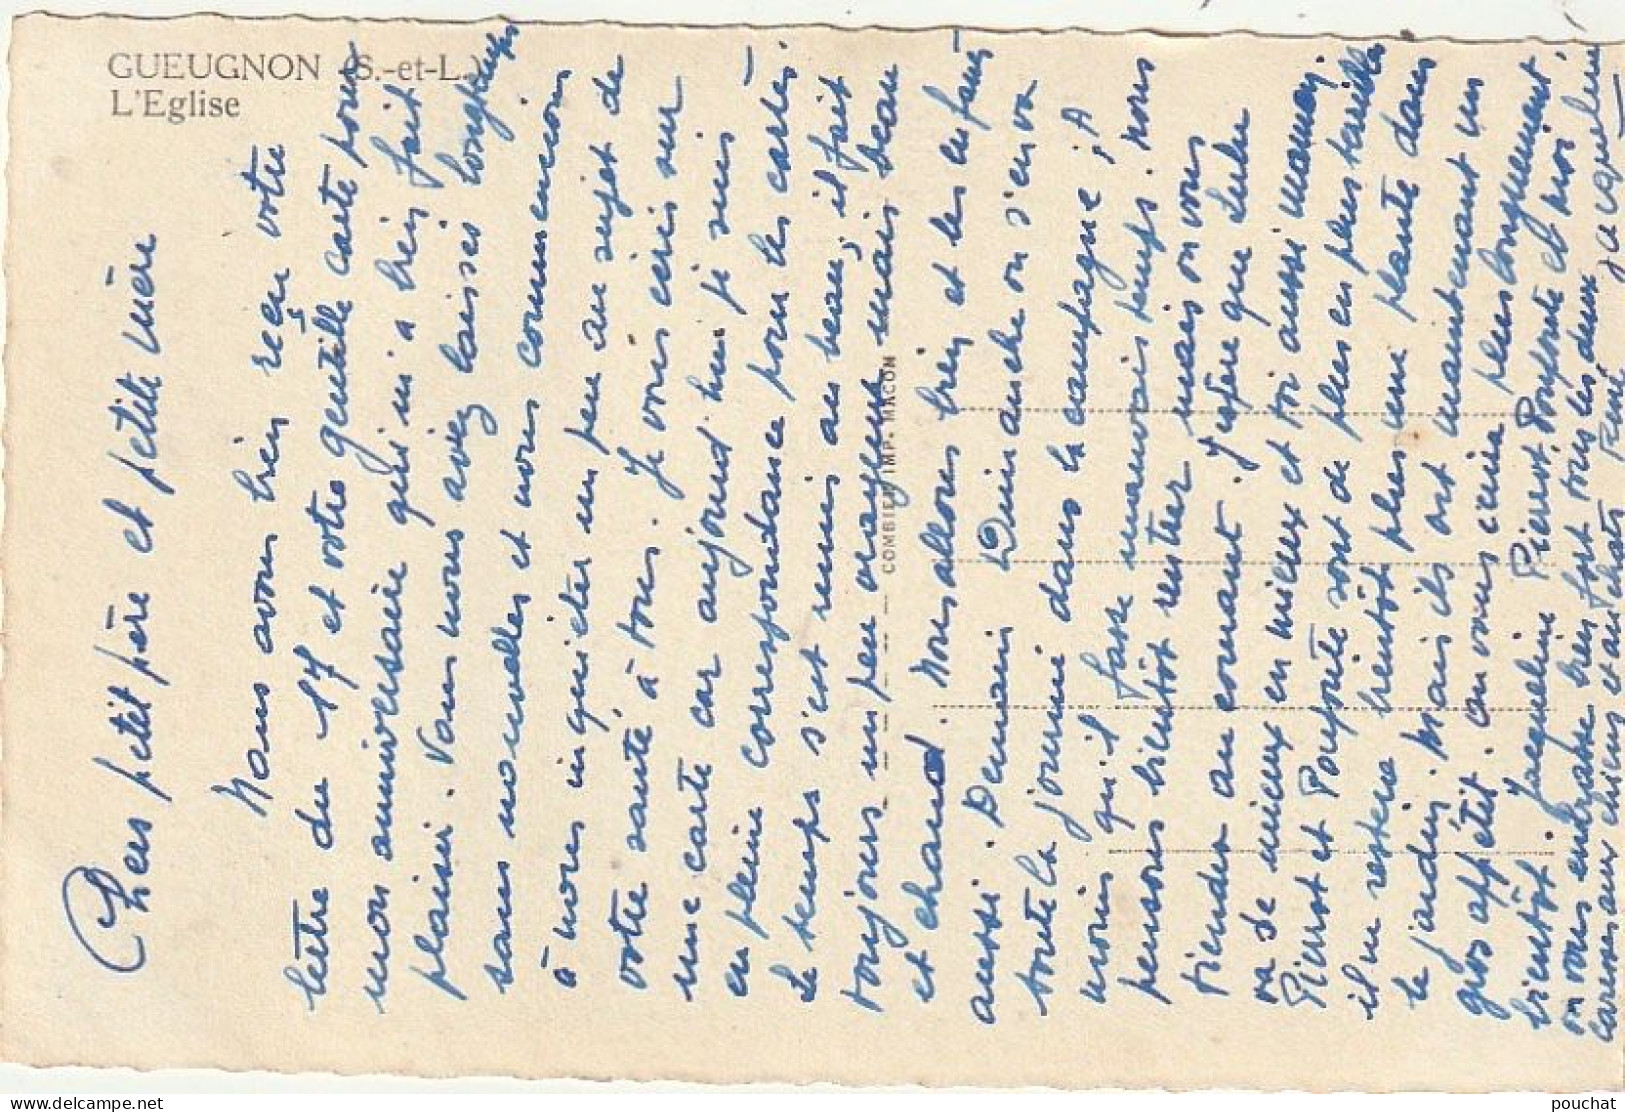 GUEUGNON (S.-et-L.)
L'Eglise
COMBIER IMP. MACON
Chers petit père et petite mère
Nous avons bien reçu votre
lettre du 17 et votre gentille carte pour
mon anniversaire qui m'a très fait
plaisir. Vous nous avez laissés longtemps
sans nouvelles et nous commencions
à nous inquiéter un peu au sujet de
votre santé à tous. Je vous écris sur
une carte car aujourd'hui je suis
en pleine correspondance pour les cartes.
Le temps s'est remis au beau, il fait
toujours un peu orageux mais beau
et chaud. Nous allons bien et les enfants
aussi. Demain Dimanche on s'en va
toute la journée dans la campagne, à
moins qu'il fasse mauvais temps. nous
pensons bientôt rentrer mais on vous
tiendra au courant. J'espère que Lulu
va de mieux en mieux et toi aussi maman.
Pierrot et sont de plus en plus terribles
il ne restera bientôt plus une plante dans
le jardin. Mais ils ont maintenant un
gros appétit. On vous écrira plus longuement
bientôt. Jacqueline Pierrot et moi
on vous embrasse bien fort tous les deux
caresses aux chiens et aux chats René Jacqueline
pouchat